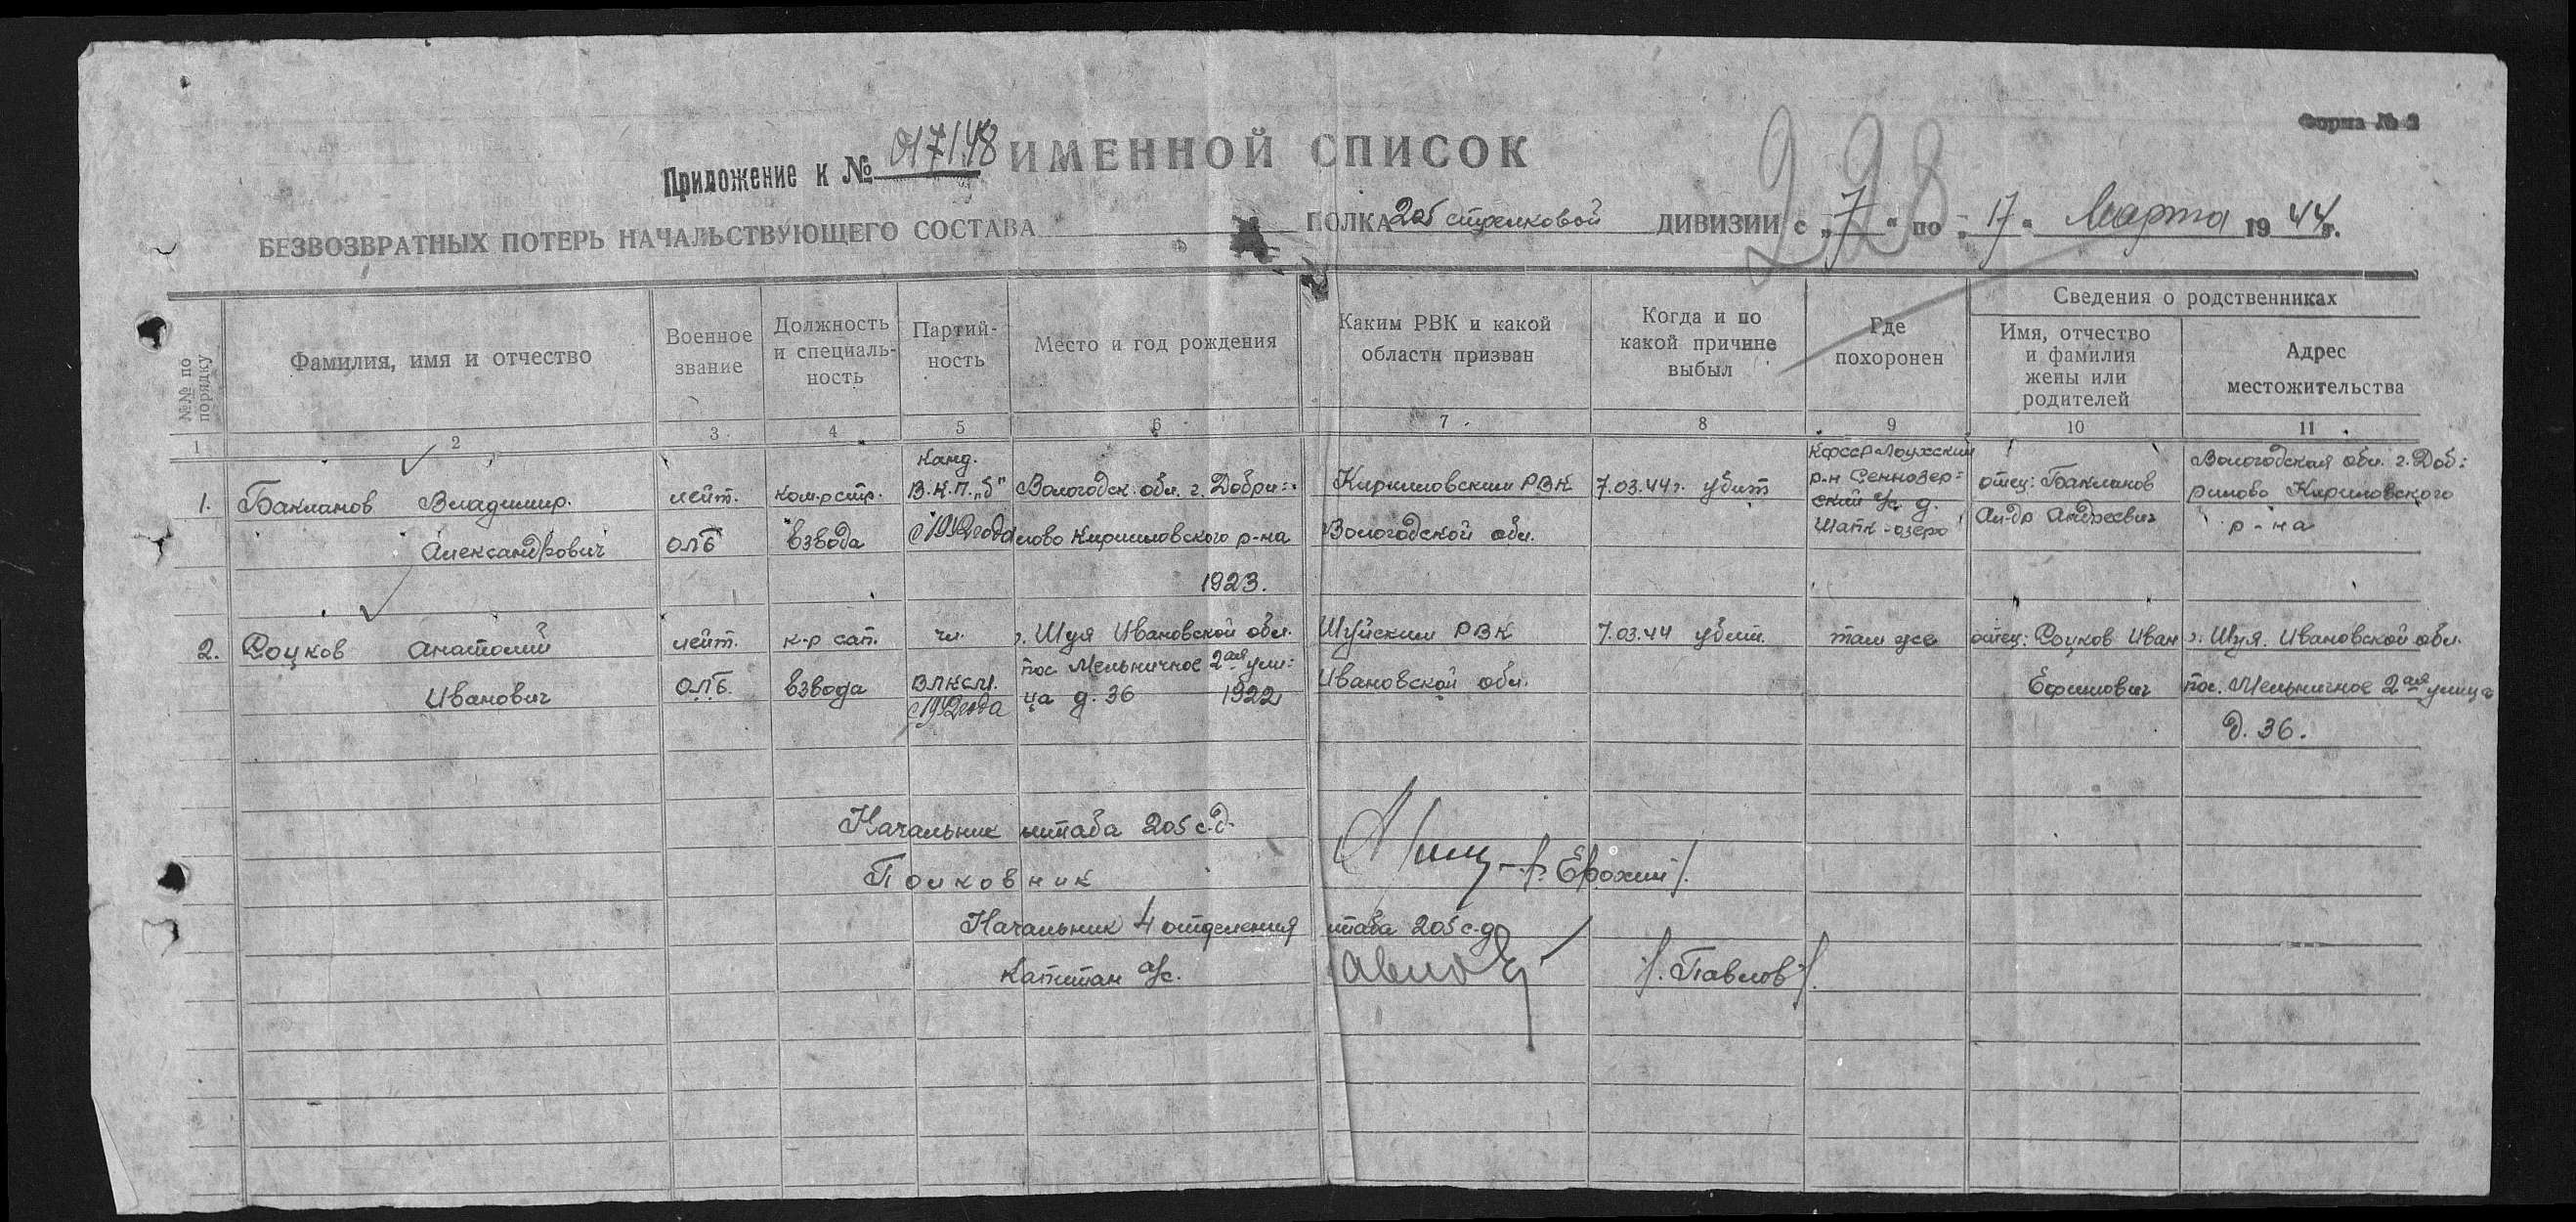 Форма № 2
Приложение к № 017148 ИМЕННОЙ СПИСОК
228
БЕЗВОЗВРАТНЫХ ПОТЕРЬ НАЧАЛЬСТВУЮЩЕГО СОСТАВА ПОЛКА 205 стрелковой ДИВИЗИИ с „7“ по „17“ Марта 1944 г.
№№ по порядку
Фамилия, имя и отчество
Военное звание
Должность и специальность
Партийность
Место и год рождения
Каким РВК и какой области призван
Когда и по какой причине выбыл
Где похоронен
Сведения о родственниках
Имя, отчество и фамилия жены или родителей
Адрес местожительства
1 2 3 4 5 6 7 8 9 10 11
канд. КФССР Лоухский Вологодская обл. г. Доб:
1. Бакланов Владимир. лейт. ком.р стр. В.К.П.„б“ Вологодск. обл. г. Добри: Кирилловским РВК 7.03.44 г. убит р-н Сеннозер: отец: Бакланов рилово Кириловского
ский с/с. д. Ал-др Андреевич р-на
Александрович ОЛБ взвода с 1942 года лово Кирилловского р-на Вологодской обл. Шапк-озеро
1923.
2. Соцков Анатолий лейт. к-р сап. чл. г. Шуя Ивановской обл. Шуйским РВК 7.03.44 убит. там же отец: Соцков Иван г. Шуя. Ивановской обл.
пос. Мельничное 2ая ули:
Иванович ОЛБ. взвода ВЛКСМ. ца д. 36 1922 Ивановской обл. Ефимович пос. Мельничное 2ая улица
с 1942 года
д. 36.
Начальник штаба 205 с.д.
Полковник /. Ерохин /.
Начальник 4 отделения штаба 205 с.д.
Капитан а/с. /. Павлов /.